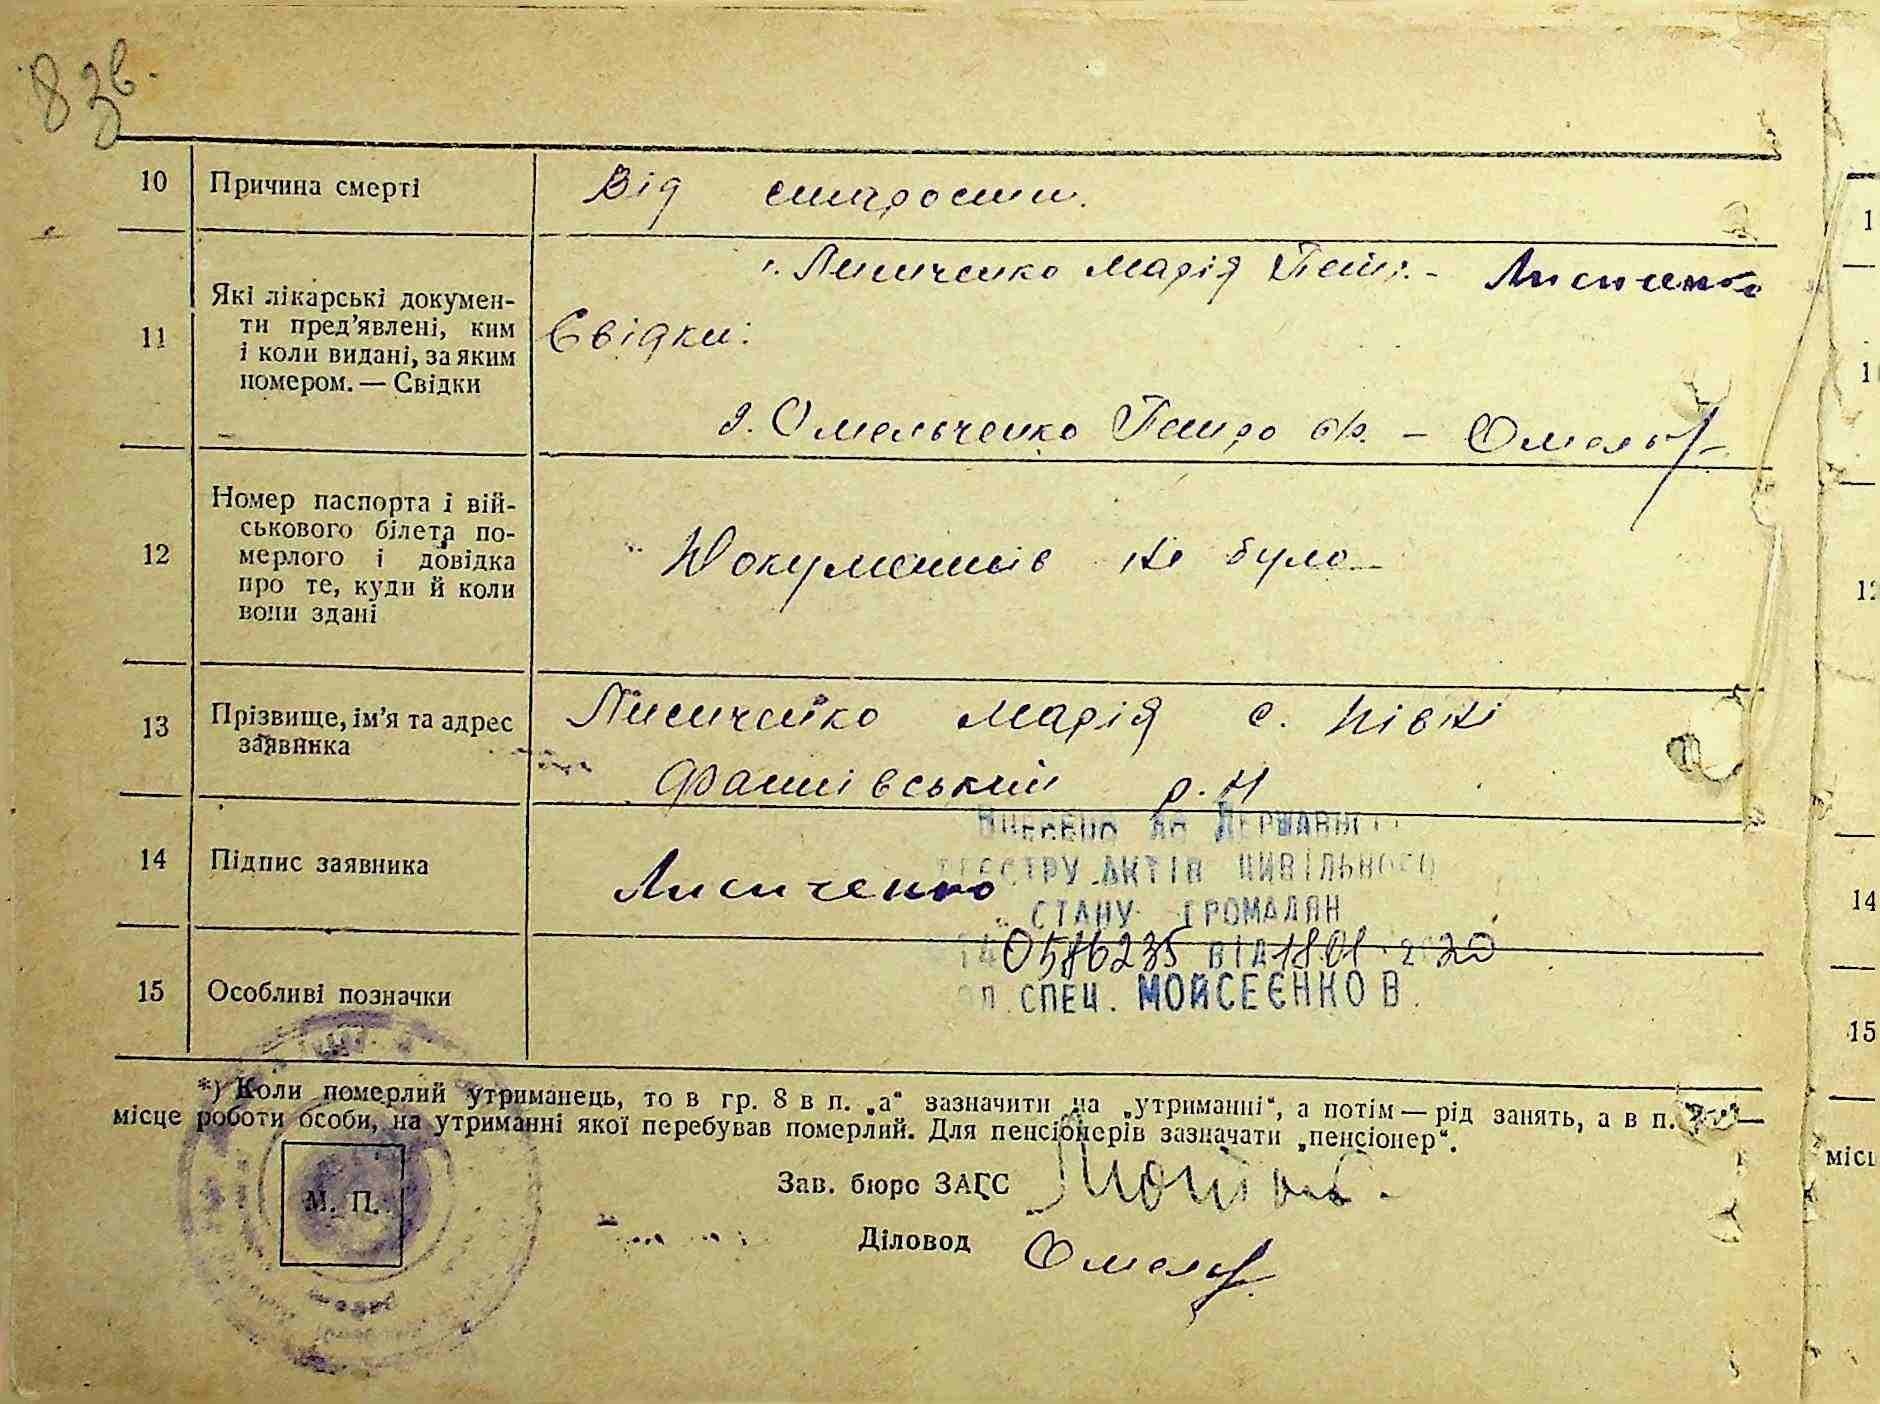 8 зв.
10 Причина смерті Від старости.
1. Лисиченко Марія Петр. - Лисиченко
11 Які лікарські докумен-
ти пред'явлені, ким
і коли видані, за яким
номером. — Свідки
Свідки:
2. Омельченко Петро - Омель
12 Номер паспорта і вій-
ськового білета по-
мерлого і довідка
про те, куди й коли
вони здані
Документів не було
13 Прізвище, ім'я та адрес
заявника
Лисиченко Марія с. Півні
Фастівський р.н
14 Підпис заявника Лисиченко
Внесено до Державного
реєстру актів цивільного
стану громадян
0586235 від 18.01.2020
СПЕЦ. МОЙСЕЄНКО В.
15 Особливі позначки
*) Коли померлий утриманець, то в гр. 8 в п. „а“ зазначити на „утриманні“, а потім — рід занять, а в п.
місце роботи особи, на утриманні якої перебував померлий. Для пенсіонерів зазначати „пенсіонер“.
М. П.
Зав. бюро ЗАГС
Діловод Омель
1
11
12
14
15
місц